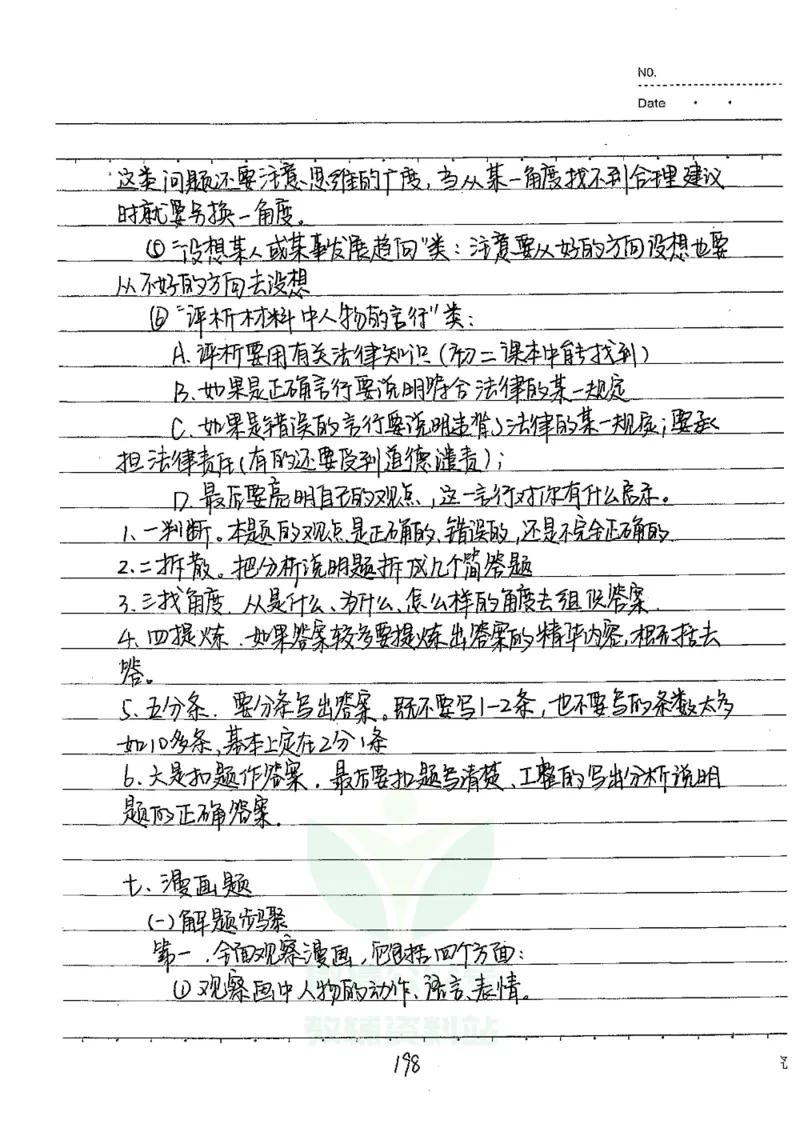 NO.
Date
这类问题还要注意思维的广度,当从某一角度找不到合理建议
时就要另换一角度。
⑤“设想某人或某事发展趋向”类:注意要从好的方向设想也要
从不好的方向去设想
⑥“评析材料中人物的言行”类:
A.评析要用有关法律知识(初二课本中能找到)
B.如果是正确言行要说明符合法律的某一规定
C.如果是错误的言行要说明违背了法律的某一规定;要承
担法律责任(有的还要受到道德谴责);
D.最后要亮明自己的观点,这一言行对你有什么启示。
1.一判断。本题的观点是正确的、错误的,还是不完全正确的
2.二拆散。把分析说明题拆成几个简答题
3.三找角度.从是什么、为什么、怎么样的角度去组织答案.
4.四提炼.如果答案较多要提炼出答案的精华内容,概括去
答。
5.五分条.要分条写出答案。既不要写1-2条,也不要写的条数太多
如10多条,基本上定在2分1条
6.六是扣题作答案.最后要扣题写清楚、工整的写出分析说明
题的正确答案.
七、漫画题
(一)解题步骤
第一,全面观察漫画,包括四个方面:
⑴观察画中人物的动作、语言、表情。
教辅资料站
198